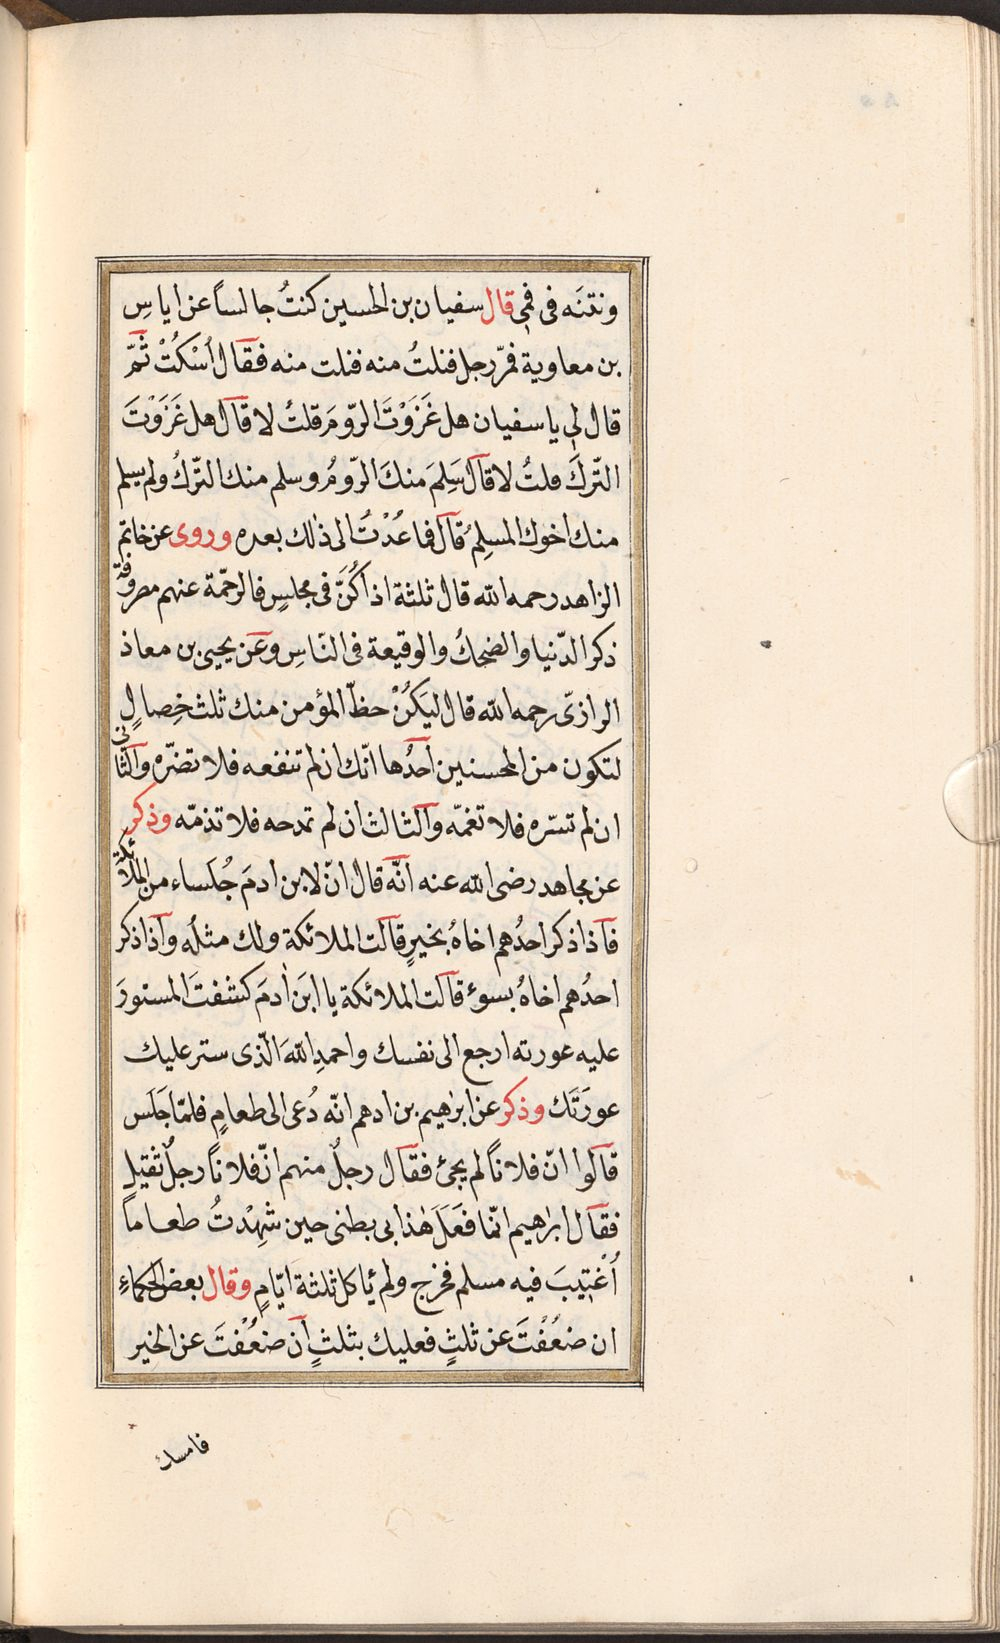 ونتنَه فى فمى قال سفيان بن الحسين كنتُ جالساً عن اياسِ
بن معاوية فمرّ رجل فنلتُ منه فنلت منه فقال اُسْكُتْ ثُمّ
قال لى يا سفيان هل غَزَوْتَ الرّومَ قلتُ لا قال هل غَزَوْتَ
التّركَ قلتُ لا قال سَلِمَ منكَ الرّومُ وسلم منك التّركُ ولم يسلم
منك اخوك المسلِمُ قال فما عُدْتُ الى ذٰلك بعده وروى عن خاتم
الزاهد رحمه الله قال ثلثة اذا كُنَّ فى مجلسٍ فالرحّمة عنهم مصروفة
ذكر الدّنيا والضحكُ والوقيعة فى النّاسِ وعَن يحيى بن معاذ
الرازىّ رحمه الله قال ليَكُنْ حظّ المؤمن منك ثلث خِصالٍ
لتكون من المحسنين احدُها انّك ان لم تنفعه فلا تضرّه والثّانى
ان لم تسرّه فلا تغمّه والثالث ان لم تمدحه فلا تذمّه وذكر
عن مجاهد رضى الله عنه انّه قال انّ لابن ادمَ جُلساء من الملائكة
فاذا ذكر احدُهم اخاهُ بخيرٍ قالت الملائكة ولك مثلُه واذا ذكر
احدُهم اخاهُ بسوءٍ قالت الملائكة يا ابنَ اٰدمَ كشفتَ المستورَ
عليه عورته ارجع الى نفسك واحمدِ اللهَ الّذى ستر عليك
عورَتَك وذكر عن ابرٰهيم بن ادهم انّه دُعى الى طعامٍ فلمّا جَلَس
قالوا انّ فلاناً لم يجئ فقال رجلٌ منهم انّ فلاناً رجلٌ ثقيل
فقال ابرٰهيم انّما فعَلَ هٰذا بى بطنى حين شهِدْتُ طعاماً
اُغْتِيبَ فيه مسلم فخرج ولم ياكل ثلثة ايّامٍ وقال بعض الحكماءِ
ان ضعُفْتَ عن ثلثٍ فعليك بثلثٍ ان ضعُفْتَ عن الخير
فامسك